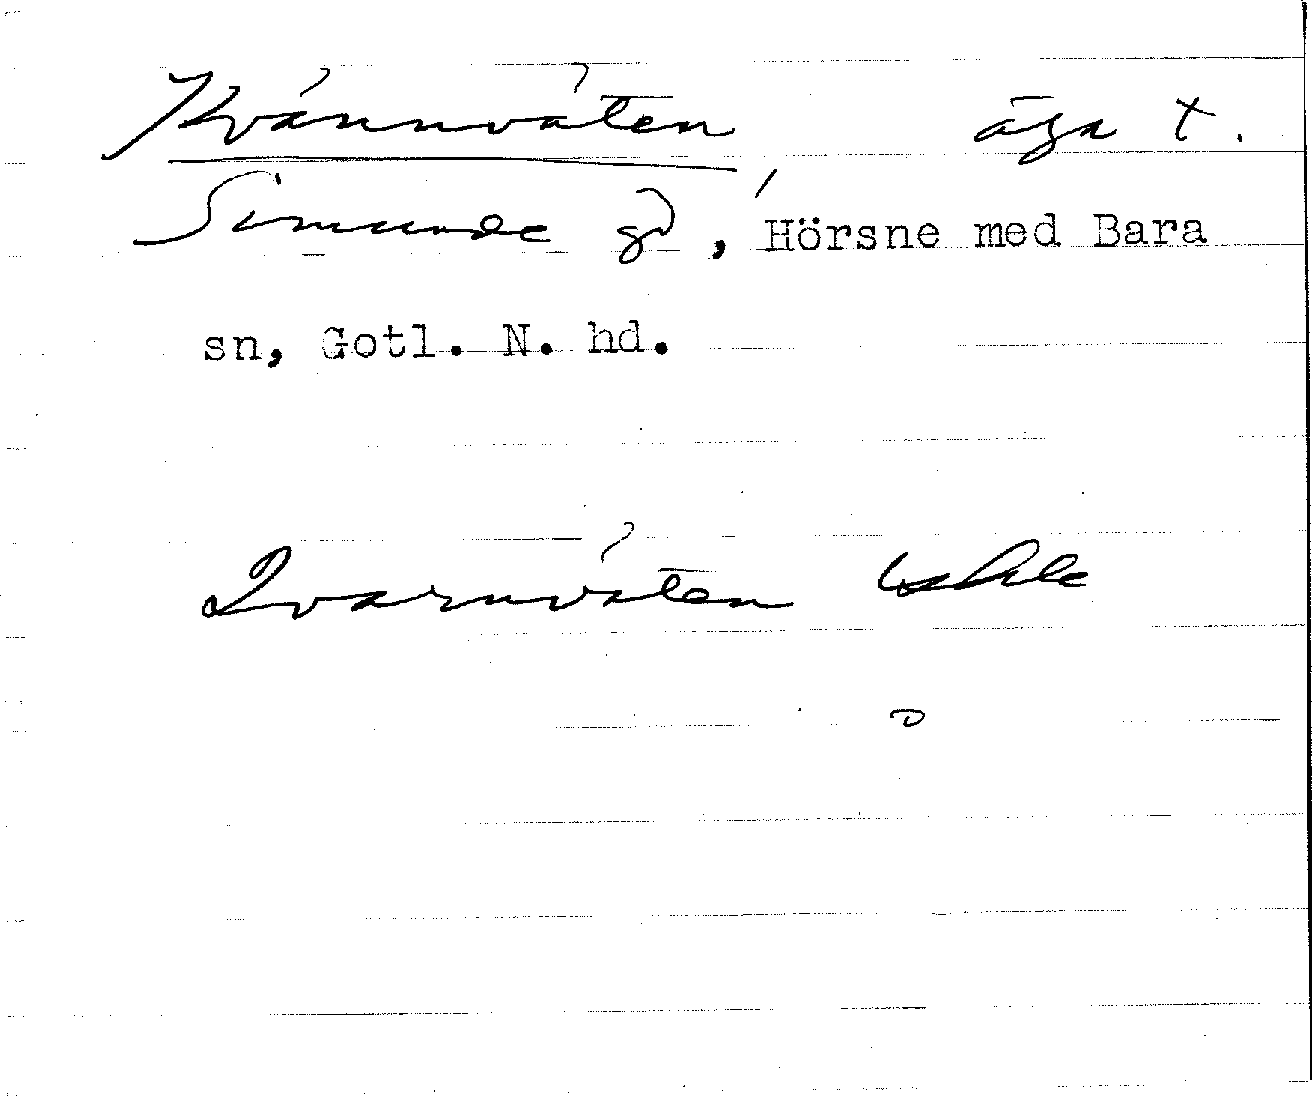 Kvännväten äga t.
Simunde gd, Hörsne med Bara
sn, Gotl. N. hd.
Qvarnväten